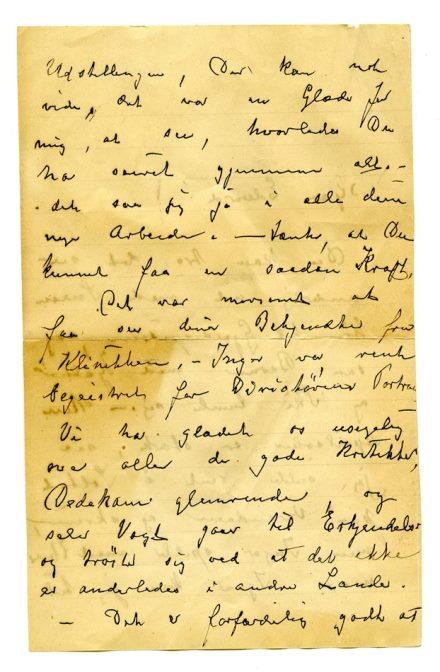 Udstillingen, Du kan nok
vide, det var en Glæde for
mig, at see, hvorledes Du
har seiret gjennem alt. –
– det saa jeg jo i alle dine
nye Arbeider. – tænk, at Du
kunnet faa en saadan Kraft.
Det var morsomt at
faa see dine Bekjendte fra
Klinikken, – Inger var rent
begeistret for Direktörens Portræt
Vi ha glædet os usigelig
over alle de gode Kritikker,
Dedekam glimrende, og
selv Vogt gaar til Erkjendelse
og tröster sig ved at det ikke
er anderledes i andre Lande.
– Det er forfærdelig godt at